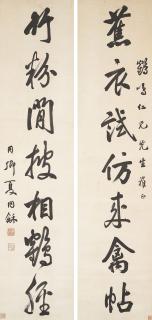 蕉衣試仿來禽帖
鶴鳴仁兄先生雅正
竹粉閒披相鶴經
同鄉夏同龢